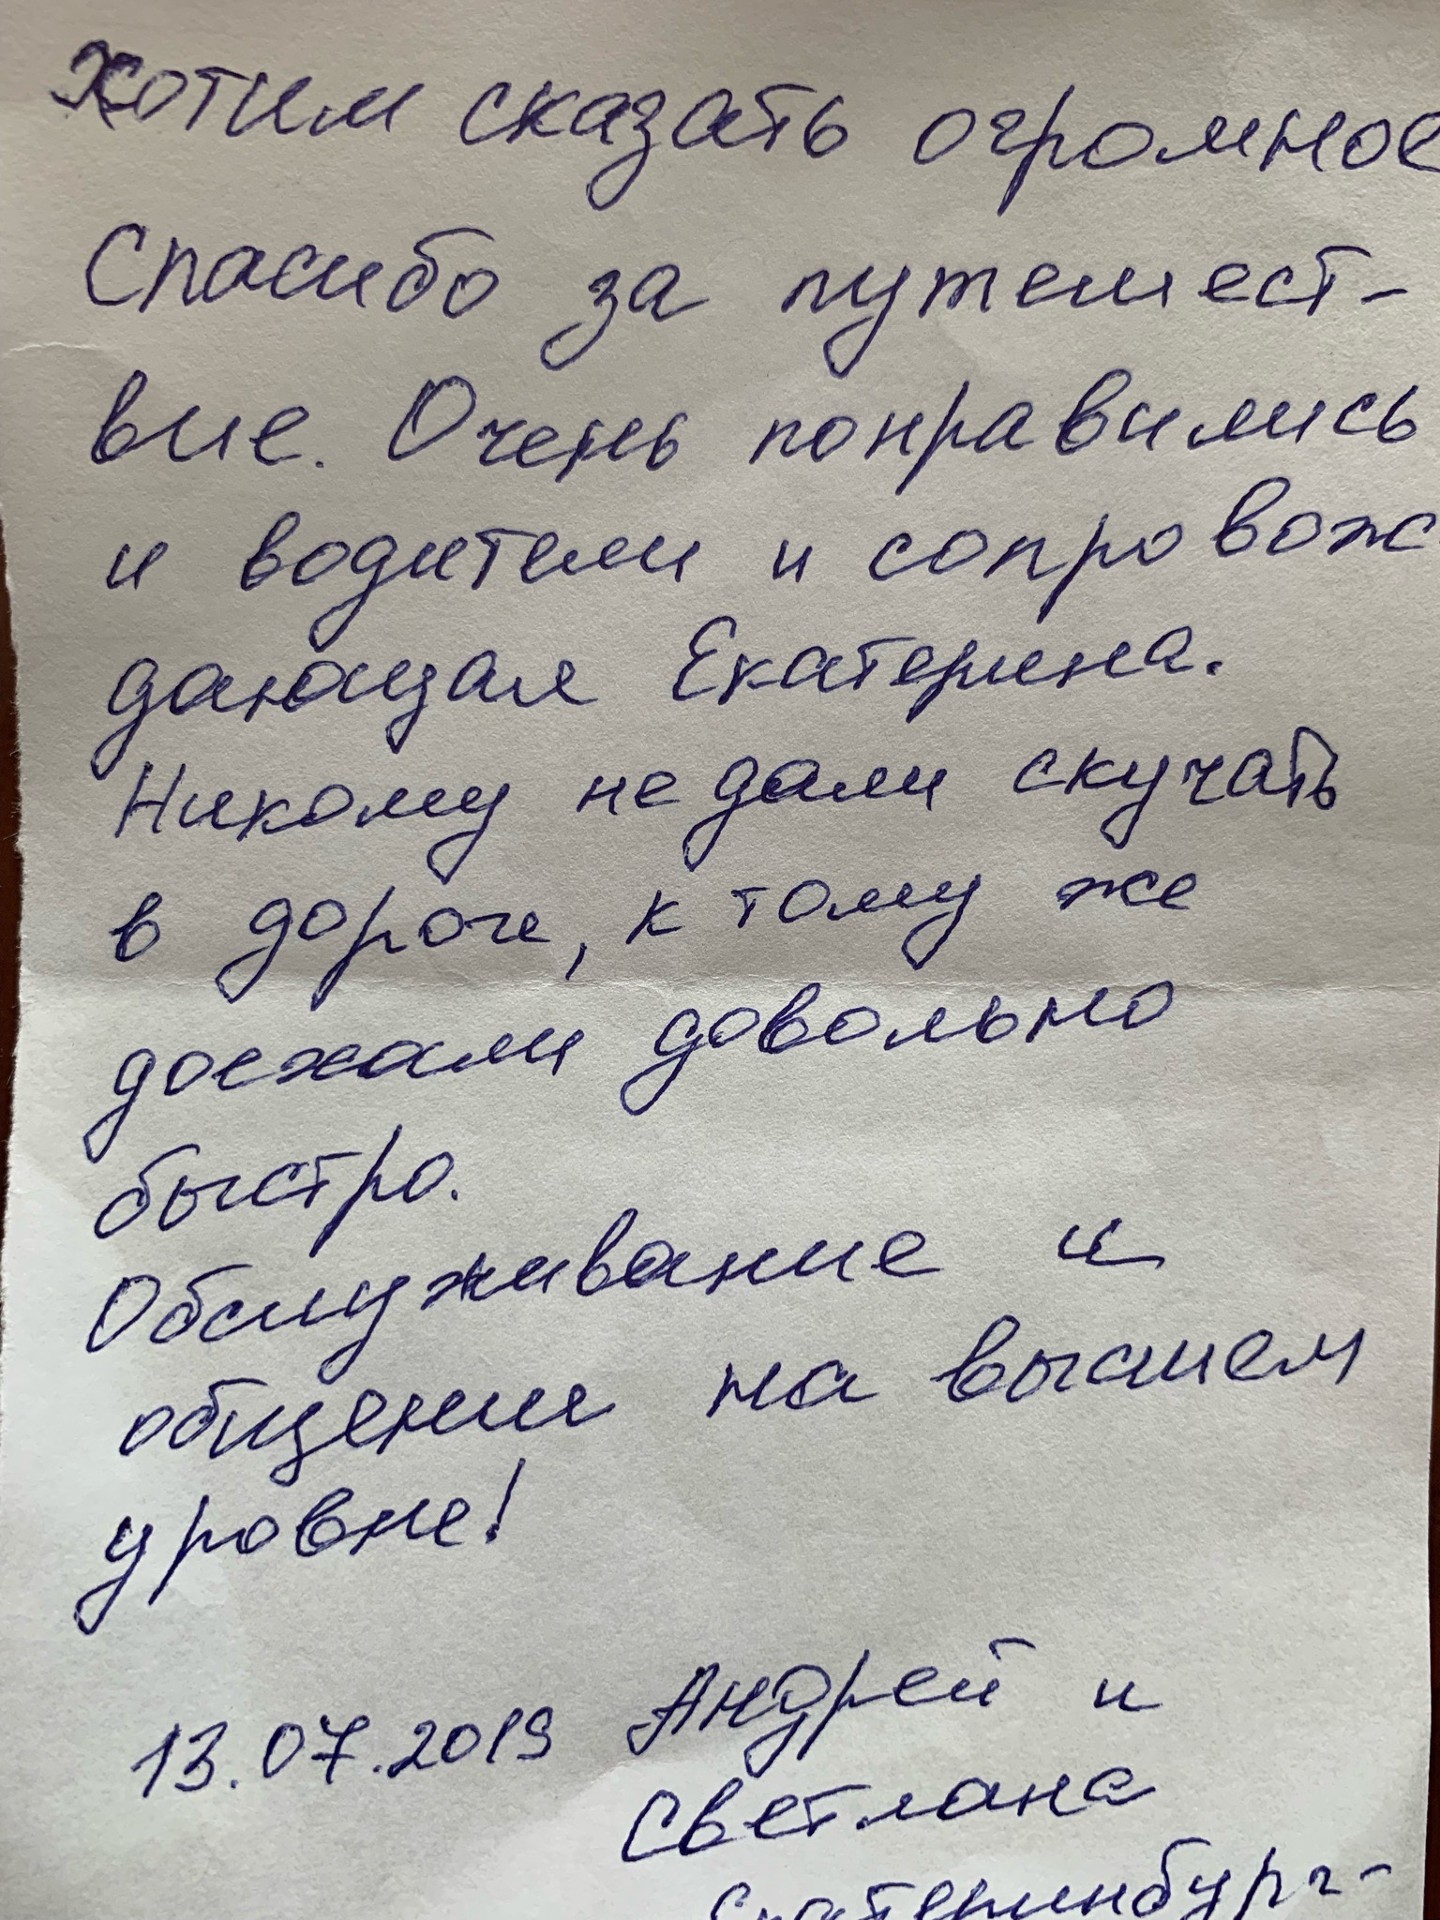 Хотим сказать огромное
Спасибо за путешест-
вие. Очень понравились
и водители и сопровож
дающая Екатерина.
Никому не дали скучать
в дороге, к тому же
доехали довольно
быстро.
Обслуживание и
общении на высшем
уровне!
13.07.2019 Андрей и
Светлана
Екатеринбург-